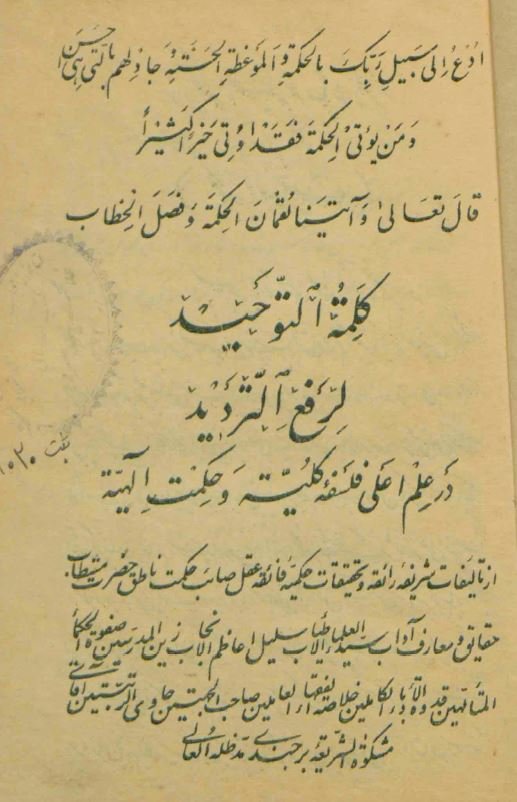 ادعُ اِلی سَبیلِ رَبِّکَ بالحکمةِ وَالموَعظةِ الحَسَنَةِ جادِلهم بالَّتی هِیَ احسَن
وَمَن یؤتی الحِکمةَ فَقَد اُوتِیَ خَیراً کَثیراً
قالَ تعَالیٰ وَآتَیناٰ لقمٰانَ الحِکمَةَ وَفصَلَ الخِطاب
کَلِمَةُ التّوحَید
لِرَفعِ التَّردَید
دَر عِلم اعَلی فلسَفهٔ کلیّه وَ حکِمَت اِلهیّة
از تألیفات شریفهٔ رائقه و تحقیقات حکمیّهٔ فائقهٔ عقل صائب حکمت ناطق حضرت مستطاب
حقایق و معارف آداب سیّد العلماء الاطیاب سلیل اعاظم الانجاب زین المدرسین صفوة الحکماء
المتألهین قدوة الادباء الکاملین خلاصة الفقهاء العاملین صاحب الجنتین حاوی الرتبتین آقای
مشکوة الشریعهٔ بیرجندی مدّظله العالی
ثبت